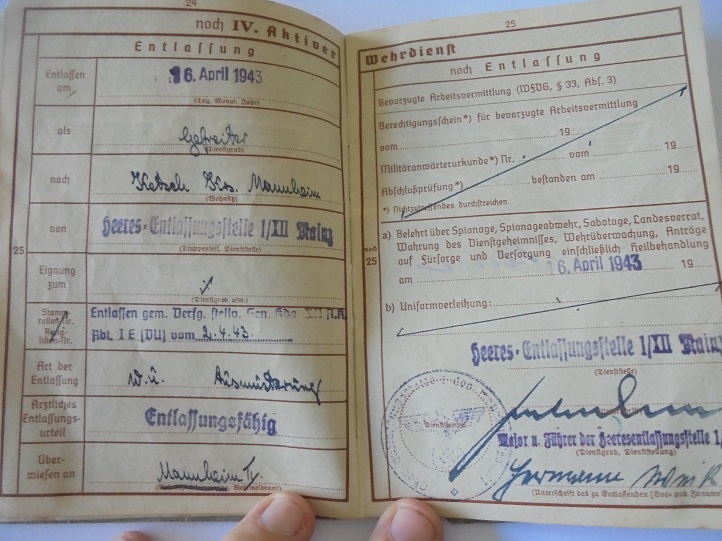 24
noch IV. Aktiver
Entlassung
Entlassen am
16. April 1943
(Tag, Monat, Jahr)
als
Gefreiter
(Dienstgrad)
nach
Ketsch Krs. Mannheim
(Wohnsitz)
von
Heeres-Entlassungsstelle I/XII Mainz
(Truppenteil, Dienststelle)
25
Eignung zum
(Dienstgrad usw.)
Entlassen gem. Verfg. stellv. Gen. Kdo XII A.K.
Abt. I E (DU) vom 2.4.43.
Art der Entlassung
w.u. Ausmusterung
Ärztliches Entlassungsurteil
Entlassungsfähig
Überwiesen an
Mannheim II
25
Wehrdienst
noch Entlassung
Bevorzugte Arbeitsvermittlung (WFVG, § 33, Abs. 3)
Berechtigungsschein*) für bevorzugte Arbeitsvermittlung
vom 19
Militäranwärterurkunde*) Nr. vom 19
Abschlußprüfung*) bestanden am 19
*) Nichtzutreffendes durchstreichen
noch
25
a) Belehrt über Spionage, Spionageabwehr, Sabotage, Landesverrat,
Wahrung des Dienstgeheimnisses, Wehrüberwachung, Anträge
auf Fürsorge und Versorgung einschließlich Heilbehandlung
am 16. April 1943 19
b) Uniformverleihung:
Heeres-Entlassungsstelle I/XII Mainz
(Dienststelle)
Major u. Führer der Heeresentlassungsstelle I/
(Dienstgrad, Dienststellung)
Hermann
(Unterschrift des zu Entlassenden [Vor- und Zuname